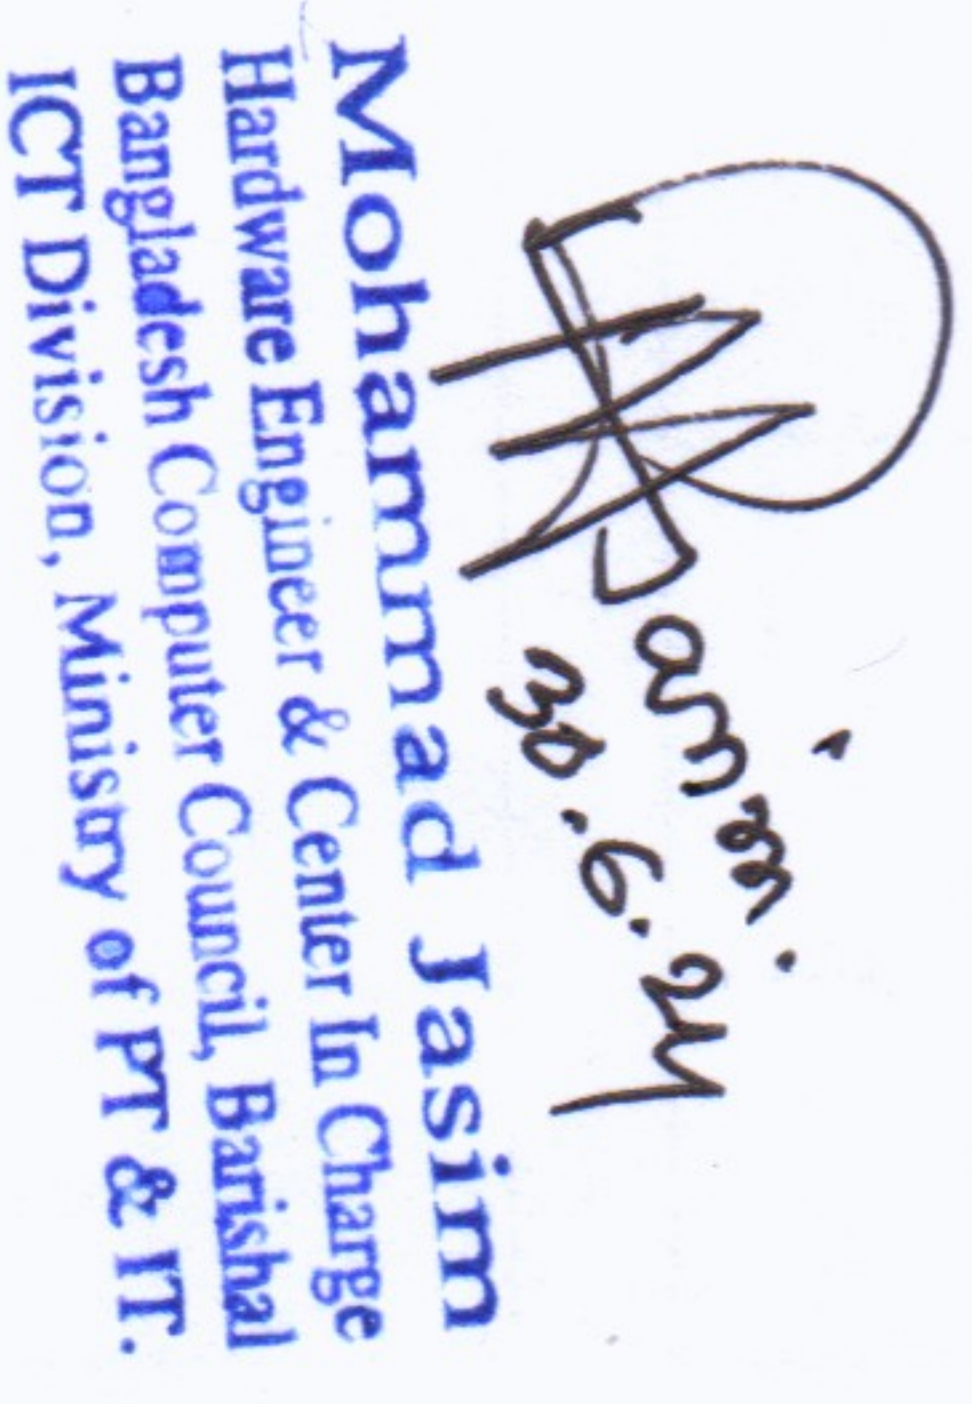 30.6.24
Mohammad Jasim
Hardware Engineer & Center In Charge
Bangladesh Computer Council, Barishal
ICT Division, Ministry of PT & IT.